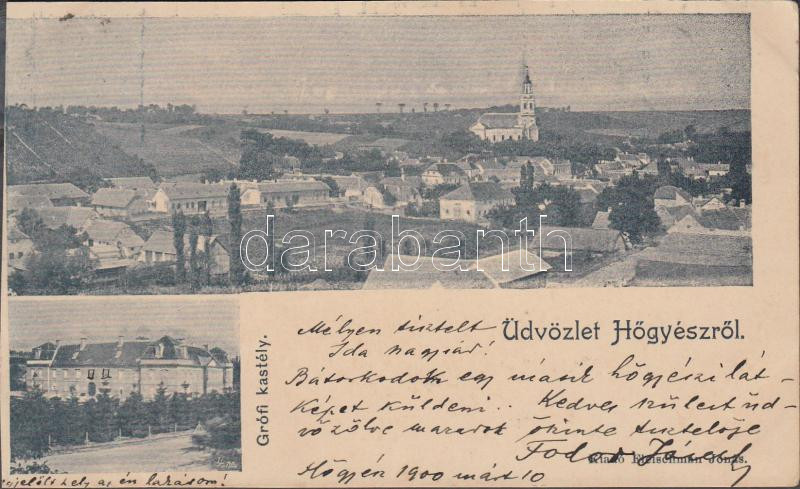 darabanth
Üdvözlet Hőgyészről.
Grófi kastély.
Mélyen tisztelt
Ida nagysád!
Bátorkodok egy másik hőgyészi lát-
képet küldeni.. Kedves szüleit üd-
vözölve maradok őszinte tisztelője
Fodor József
Hőgyész 1900 márt 10
Kiadó Fleischman Jónás.
hely az én lakásom!